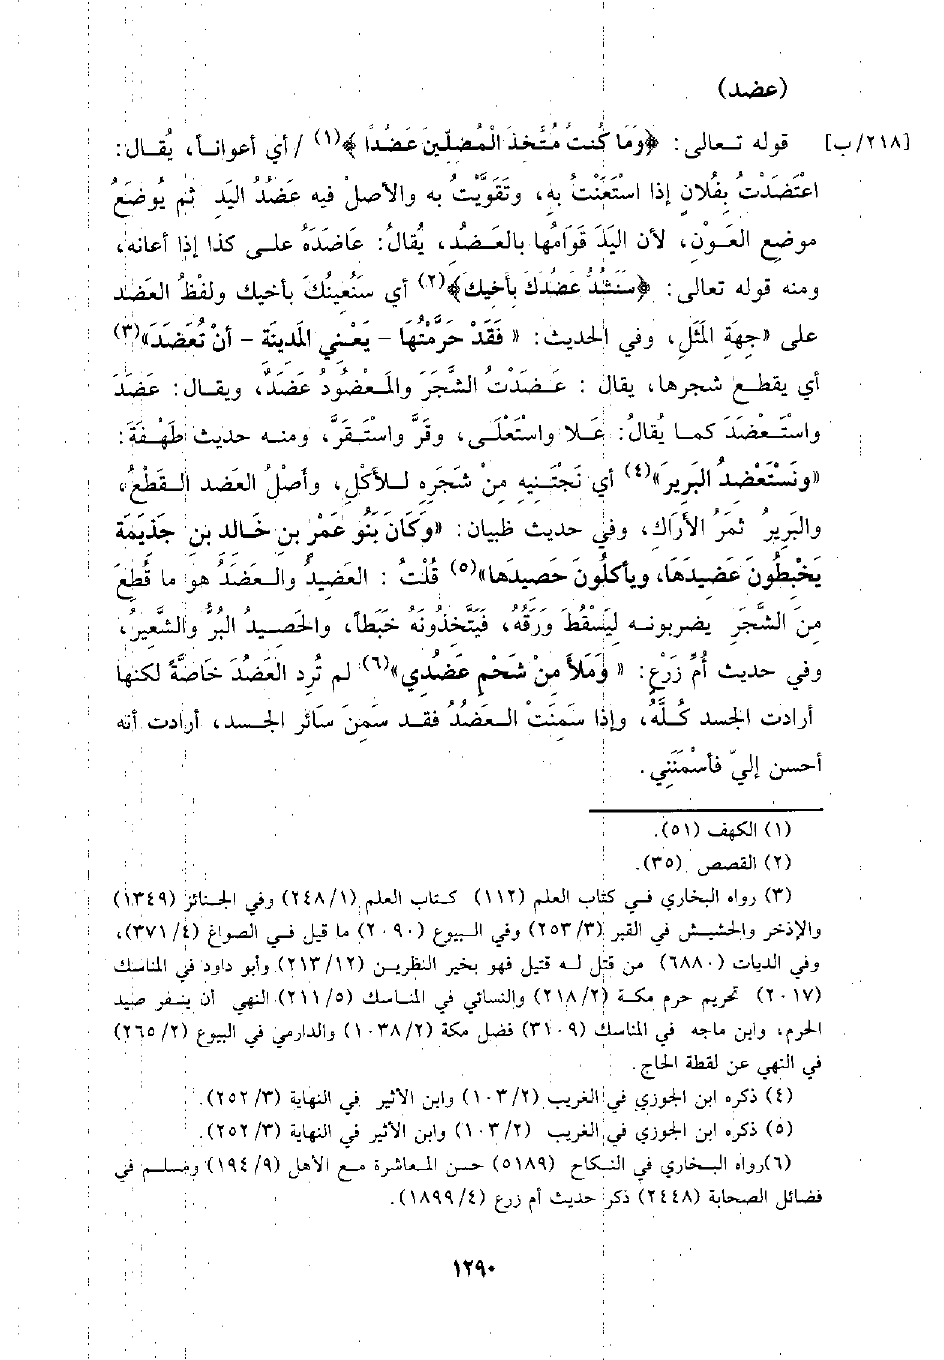 (عضد)
[٢١٨/ب] قوله تعالى: ﴿وَمَا كُنتُ مُتَّخِذَ الْمُضِلِّينَ عَضُدًا﴾(١) / أي أعواناً، يُقال:
اعْتَضَدْتُ بِفُلانٍ إذا اسْتَعَنْتُ بِهِ، وتَقَوَّيْتُ به والأصلُ فيه عَضُدُ اليَدِ ثم يُوضَعُ
موضع العَوْنِ، لأن اليَدَ قوَامُها بالعَضُد، يُقالُ: عَاضَدَهُ على كذا إذا أعانه،
ومنه قوله تعالى: ﴿سَنَشُدُّ عَضُدَكَ بأَخيكَ﴾(٢) أي سَنُعينُكَ بأخيك ولفظُ العَضد
على «جهةِ المَثَلِ، وفي الحديث: «فَقَدْ حَرَّمْتُهَا - يَعْني المَدينَة - أنْ تُعضَدَ»(٣)
أي يقطع شجرها، يقال : عَضَدْتُ الشَّجَرَ والمَعْضُودُ عَضَدٌ، ويقال: عَضَدَ
واسْتَعْضَدَ كما يُقالُ: عَلا واستَعْلَى، وقَرَّ واستَقَرَّ، ومنه حديث طَهْفَةَ:
«ونَسْتَعْضدُ البَريرَ»(٤) أي نَجْتَنِيهِ منْ شَجَرِهِ للأكْلِ، وأصْلُ العَضد القَطعُ،
والبَريرُ ثمَرُ الأرَاك، وفي حديث ظبيان: «وَكَانَ بَنُو عَمْرِ بن خَالد بن جَذيمَة
يَخْبطُونَ عَضيدَهَا، ويأكُلُونَ حَصيدَهَا»(٥) قُلْتُ : العَضيدُ والعَضَدُ هو ما قُطعَ
منَ الشَّجَرِ يضربونه ليَسْقُطَ وَرَقُهُ، فَيَتَّخذُونَهُ خَبَطاً، والحَصيدُ البُرُّ والشَّعيرُ،
وفي حديث أمِّ زَرْعٍ: «وَمَلأَ منْ شَحْمٍ عَضُدي»(٦) لم تُرد العَضُدَ خَاصَّةً لكنها
أرادت الجسد كُلَّهُ، وإذا سَمنَتْ العَضُدُ فقد سَمنَ سَائر الجسد، أرادت أنه
أحسن إليّ فأسْمَنَني.
(١) الكهف (٥١).
(٢) القصص (٣٥).
(٣) رواه البخاري في كتاب العلم (١١٢) كتاب العلم (٢٤٨/١) وفي الجنائز (١٣٤٩)
والإذخر والحشيش في القبر (٢٥٣/٣) وفي البيوع (٢٠٩٠) ما قيل في الصواغ (٣٧١/٤)،
وفي الديات (٦٨٨٠) من قتل له قتيل فهو بخير النظرين (٢١٣/١٢) وأبو داود في المناسك
(٢٠١٧) تحريم حرم مكة (٢١٨/٢) والنسائي في المناسك (٢١١/٥) النهي أن ينفر صيد
الحرم، وابن ماجه في المناسك (٣١٠٩) فضل مكة (١٠٣٨/٢) والدارمي في البيوع (٢٦٥/٢)
في النهي عن لقطة الحاج.
(٤) ذكره ابن الجوزي في الغريب (١٠٣/٢) وابن الأثير في النهاية (٢٥٢/٣).
(٥) ذكره ابن الجوزي في الغريب (١٠٣/٢) وابن الأثير في النهاية (٢٥٢/٣).
(٦) رواه البخاري في النكاح (٥١٨٩) حسن المعاشرة مع الأهل (١٩٤/٩) ومسلم في
فضائل الصحابة (٢٤٤٨) ذكر حديث أم زرع (١٨٩٩/٤).
١٢٩٠